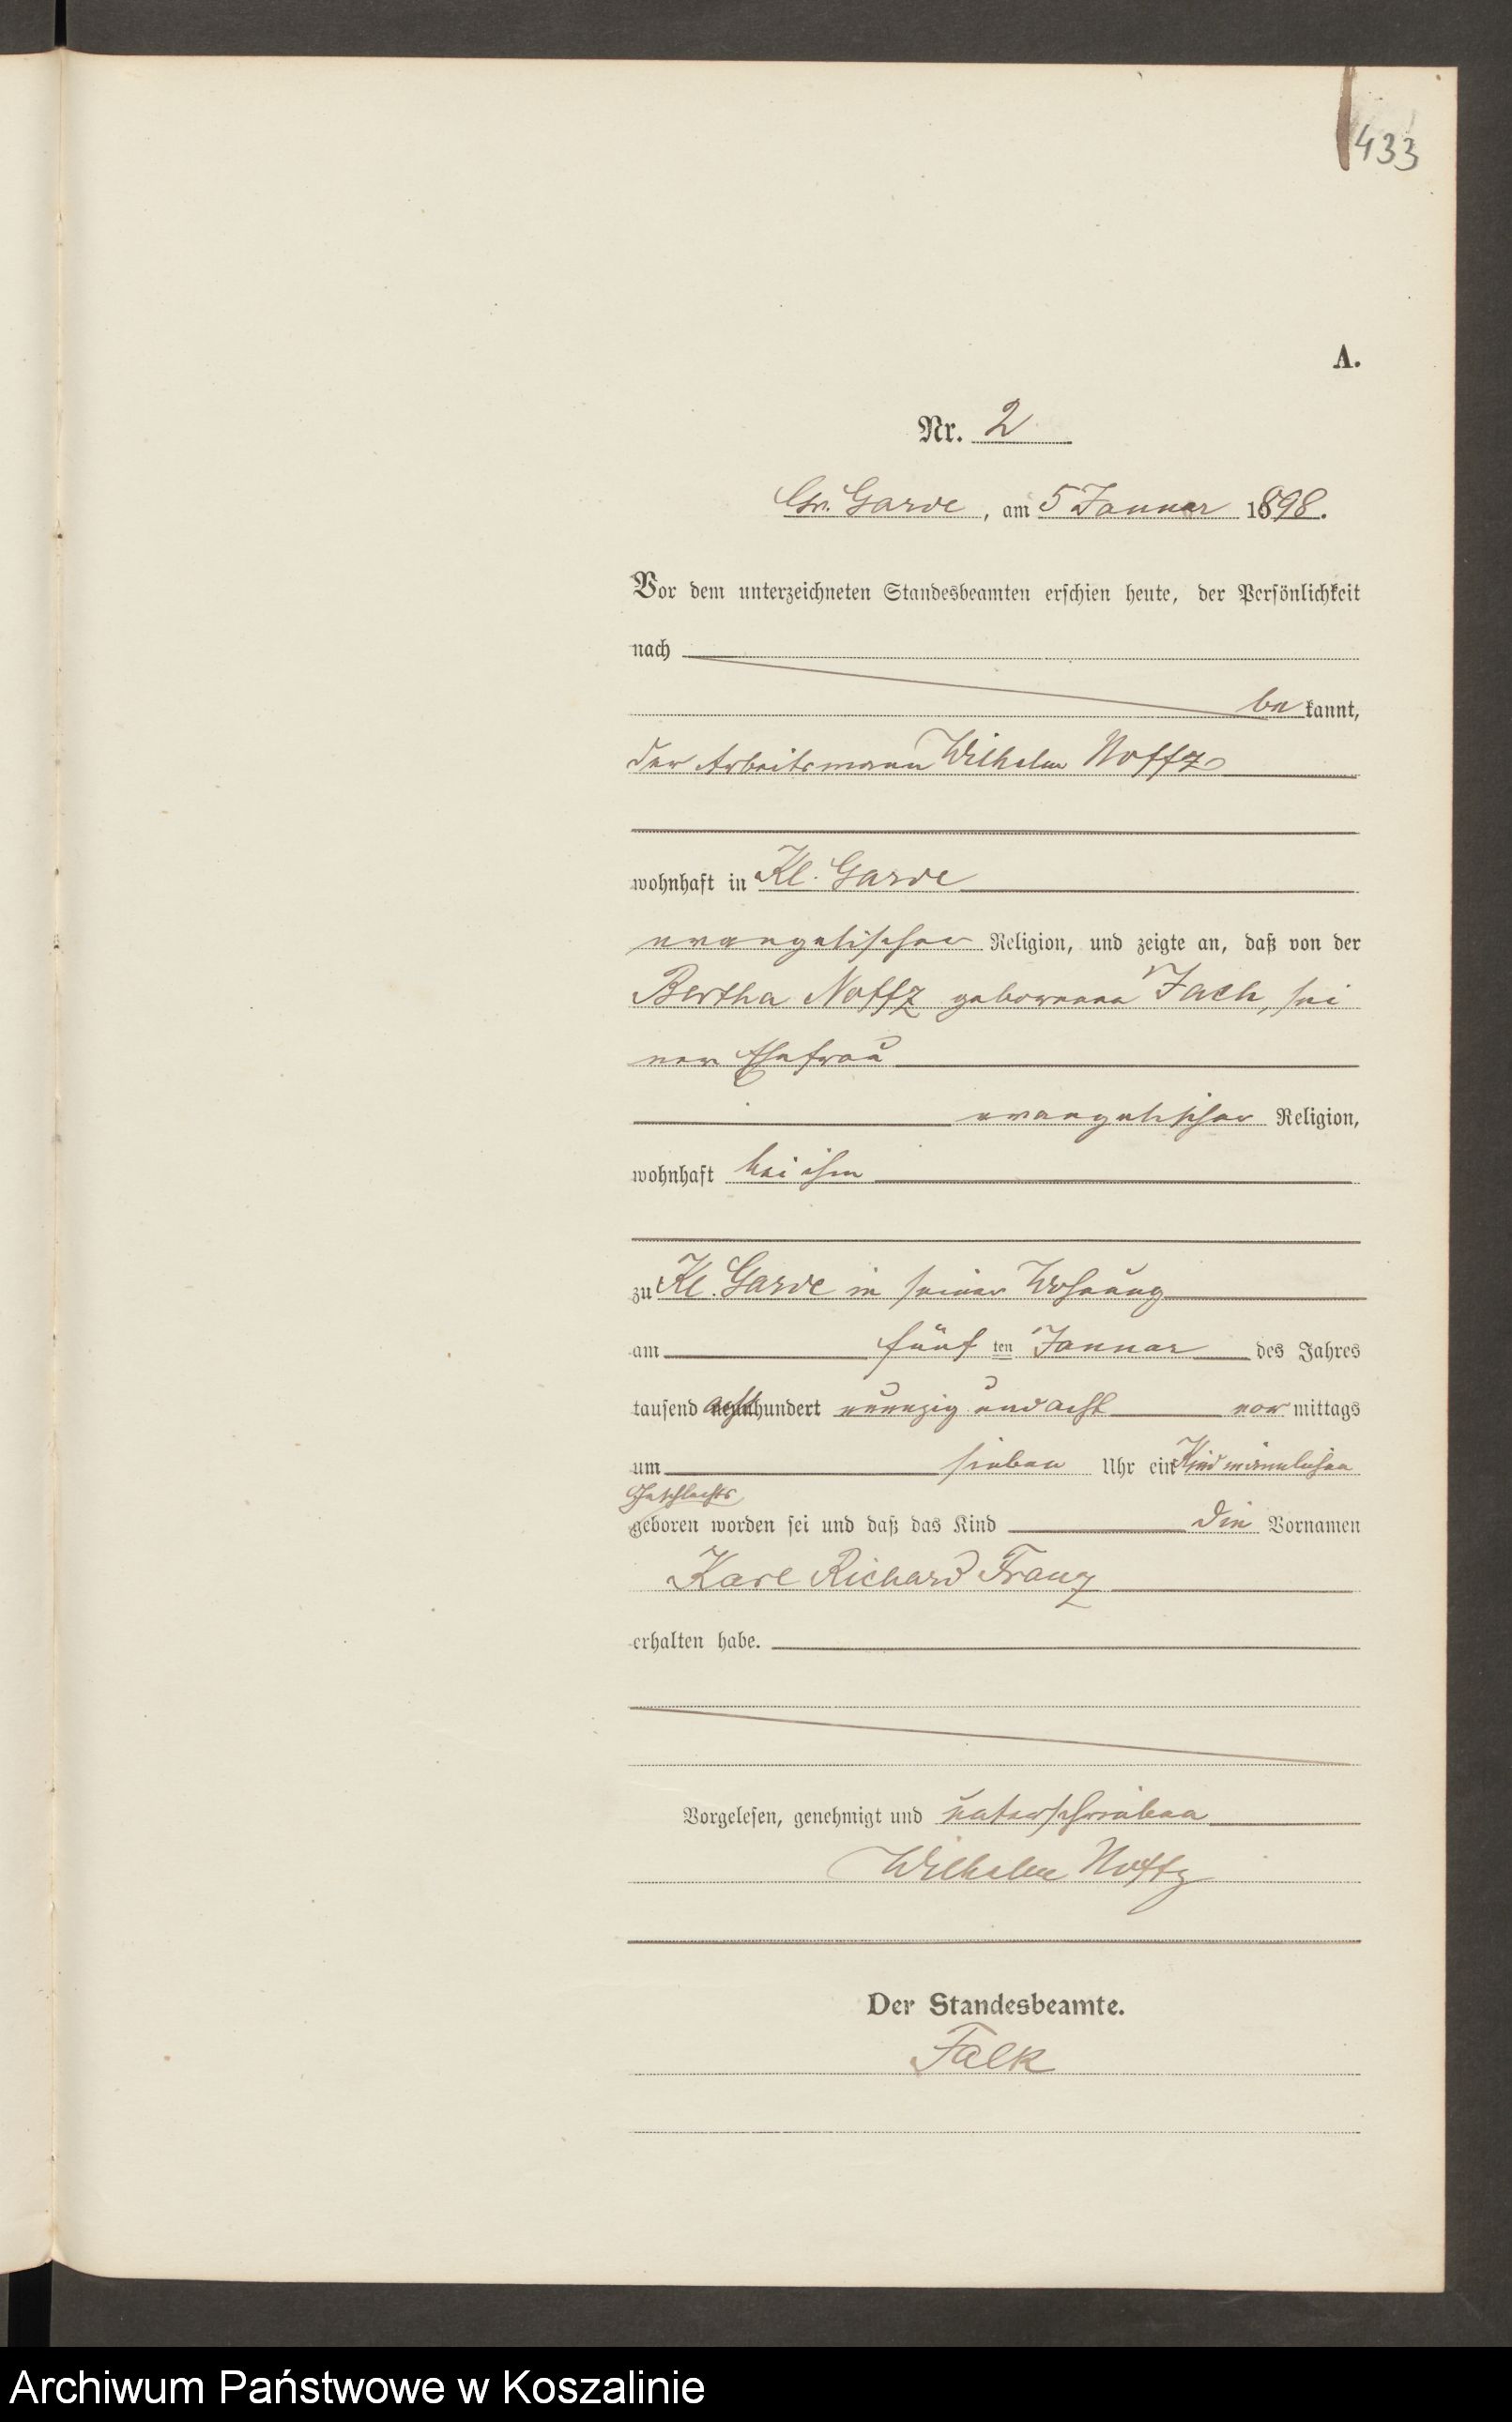 433
A.
Nr. 2
Gr. Garde, am 5 Januar 1898.
Vor dem unterzeichneten Standesbeamten erschien heute, der Persönlichkeit
nach
be kannt,
der Arbeitsmann Wilhelm Noffz
wohnhaft in Kl. Garde
evangelischer Religion, und zeigte an, daß von der
Bertha Noffz geborenen Jach, sei
ner Ehefrau
evangelischer Religion,
wohnhaft bei ihm
zu Kl. Garde in seiner Wohnung
am fünf ten Januar des Jahres
tausend acht neunhundert neunzig und acht vor mittags
um sieben Uhr ein Kind männlichen
Geschlechts
geboren worden sei und daß das Kind die Vornamen
Karl Richard Franz
erhalten habe.
Vorgelesen, genehmigt und unterschrieben
Wilhelm Noffz
Der Standesbeamte.
Falk
Archiwum Państwowe w Koszalinie